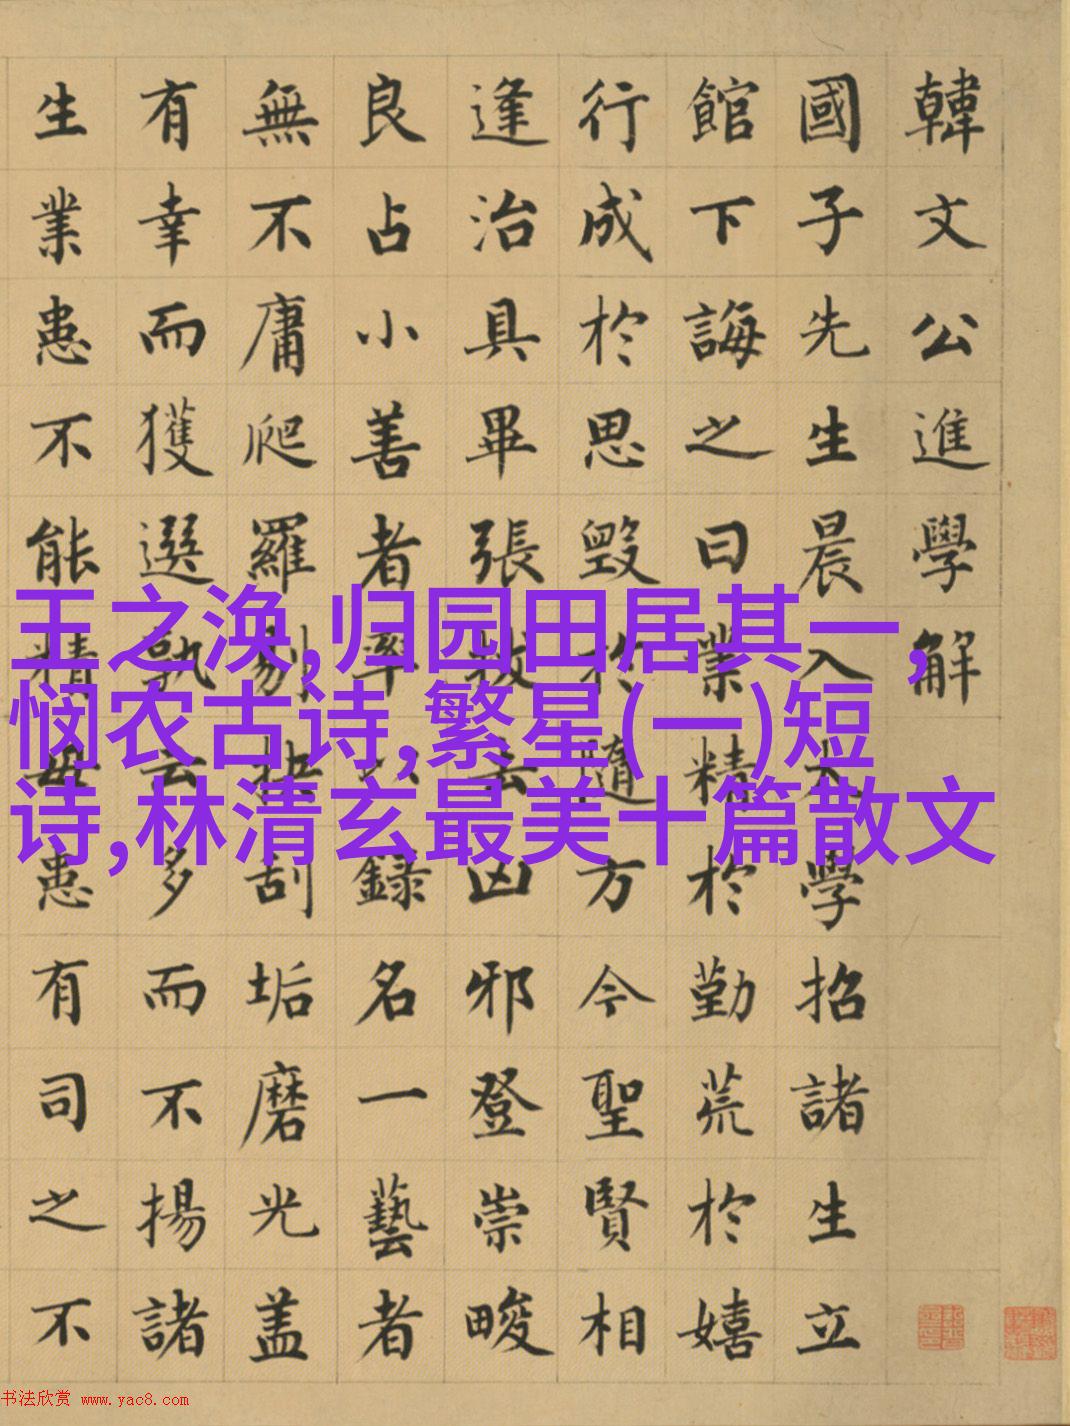 韓文公進學解
國子先生晨入太學招諸生立
館下誨之曰業精於勤荒於嬉
行成於思毀於隨方今聖賢相
逢治具畢張拔去凶邪登崇畯
良占小善者率以錄名一藝者
無不庸爬羅剔抉刮垢磨光盖
有幸而獲選孰云多而不揚諸
生業患不能精毋患有司之不
王之涣,归园田居其一,
悯农古诗,繁星(一)短
诗,林清玄最美十篇散文
书法欣赏 www.yac8.com